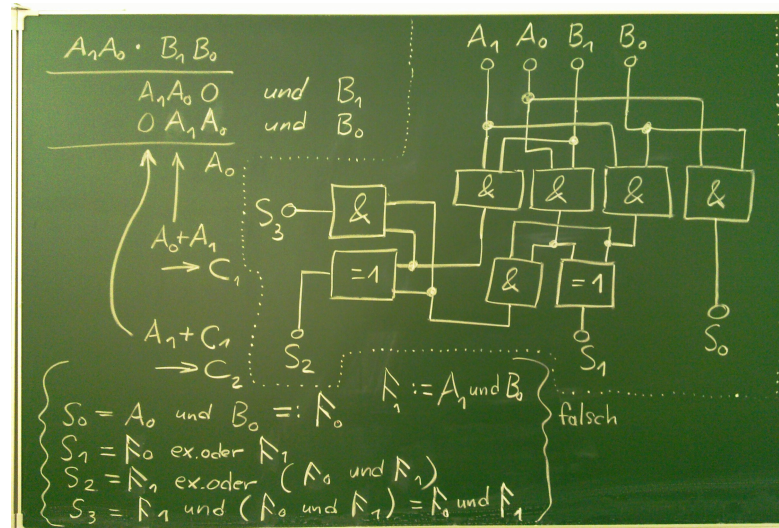 A₁A₀ · B₁B₀
A₁A₀0 und B₁
0A₁A₀ und B₀
A₀
A₀+A₁
→ C₁
A₁+C₁
→ C₂
A₁ A₀ B₁ B₀
& & & &
S₃ &
=1 & =1
S₂ S₁ S₀
ᚫ₁ := A₁ und B₀
S₀ = A₀ und B₀ =: ᚫ₀
S₁ = ᚫ₀ ex.oder ᚫ₁
S₂ = ᚫ₁ ex.oder (ᚫ₀ und ᚫ₁)
S₃ = ᚫ₁ und (ᚫ₀ und ᚫ₁) = ᚫ₀ und ᚫ₁
falsch